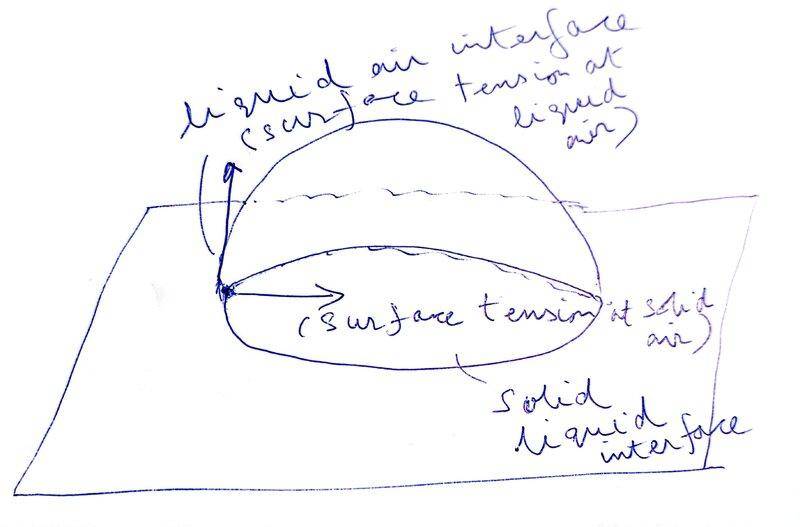 liquid air interface
(surface tension at
liquid
air)
(surface tension at solid
air)
solid
liquid
interface